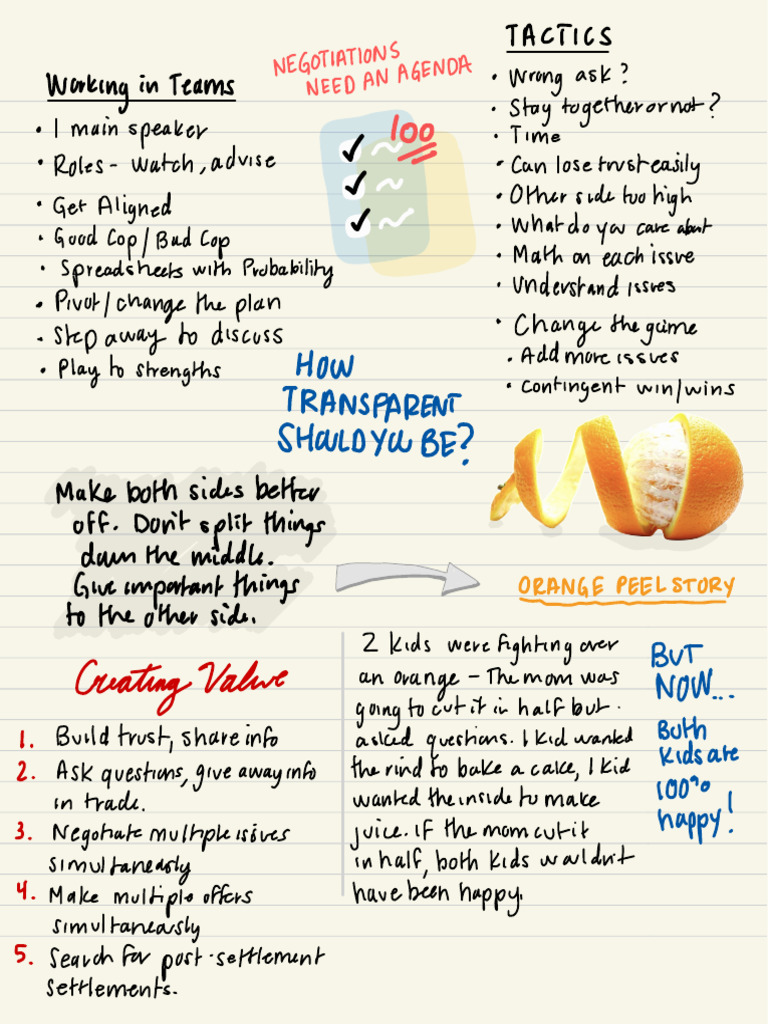 Working in Teams
• 1 main speaker
• Roles - watch, advise
• Get Aligned
• Good Cop / Bad Cop
• Spreadsheets with Probability
• Pivot / change the plan
• Step away to discuss
• Play to strengths
NEGOTIATIONS
NEED AN AGENDA
100
TACTICS
• Wrong ask?
• Stay together or not?
• Time
• Can lose trust easily
• Other side too high
• What do you care about
• Math on each issue
• Understand issues
• Change the game
• Add more issues
• Contingent win/wins
HOW
TRANSPARENT
SHOULD YOU BE?
Make both sides better
off. Don't split things
down the middle.
Give important things
to the other side.
ORANGE PEEL STORY
Creating Value
1. Build trust, share info
2. Ask questions, give away info
in trade.
3. Negotiate multiple issues
simultaneasly
4. Make multiple offers
simultaneously
5. Search for post-settlement
settlements.
2 kids were fighting over
an orange - The mom was
going to cut it in half but.
asked questions. 1 kid wanted
the rind to bake a cake, 1 kid
wanted the inside to make
juice. If the mom cut it
in half, both kids wouldn't
have been happy.
BUT
NOW...
Both
kids are
100%
happy!